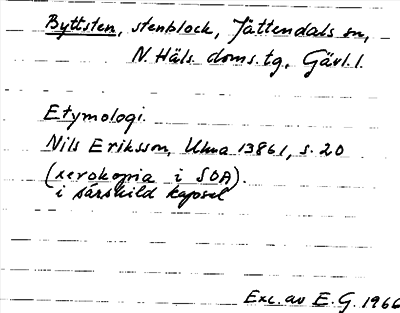 Byttsten, stenblock, Jättendals sn,
N. Häls. doms.tg, Gävl. l.
Etymologi.
Nils Eriksson, Ulma 13861, s. 20
(xerokopia i SOA).
i särskild kapsel
Exc. av E. G. 1966